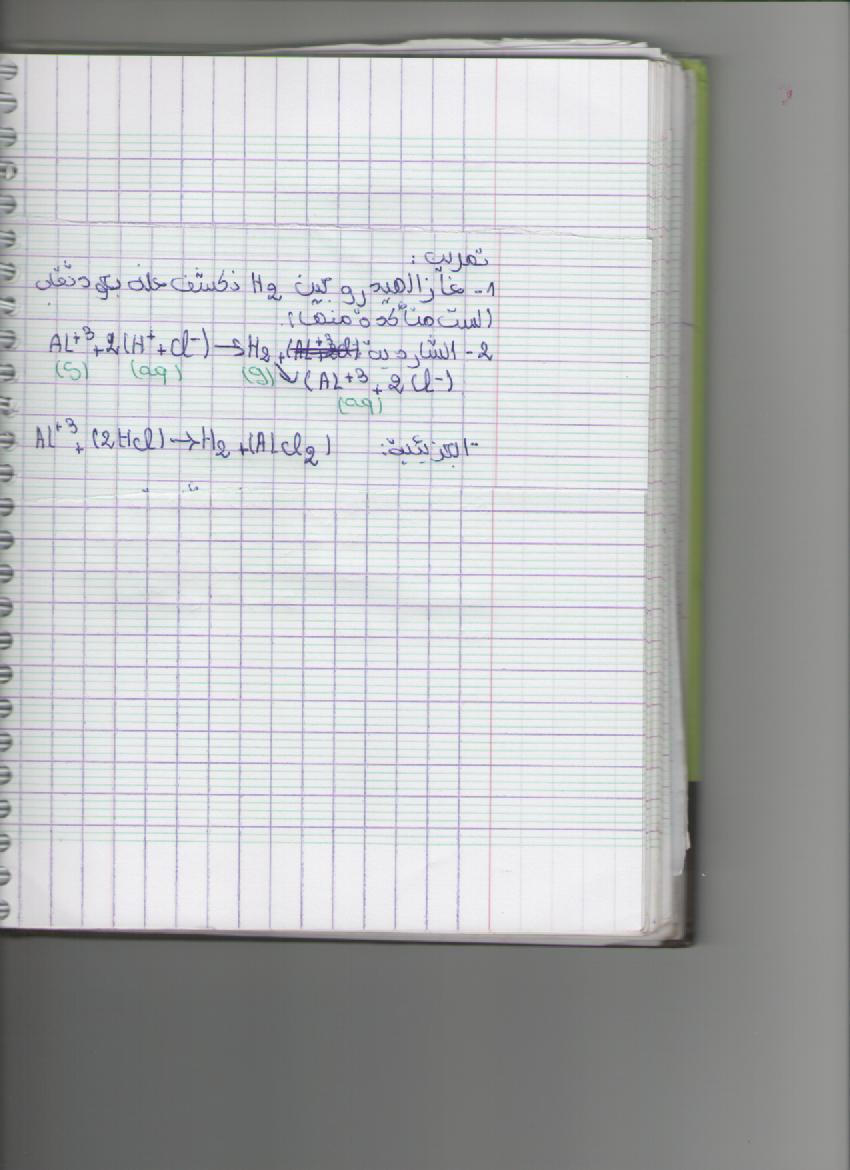 تمرين :
1- غاز الهيدروجين H2 نكشف عنه بعود ثقاب
(لست متأكدة منها).
2- الشاردية Al+3 + 2(H+ + Cl-) → H2 +
(s) (aq) (g) (Al+3 + 2Cl-)
(aq)
- الجزيئية: Al+3 + (2HCl) → H2 + (AlCl2)